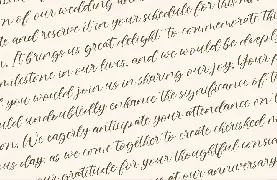 on of our wedding
and reserve it in your schedule for this
. It brings us great delight to commemorate this
milestone in our lives, and we would be deeply
you would join us in sharing our joy. Your
would undoubtedly enhance the significance of
on. We eagerly anticipate your attendance on
us day, as we come together to create cherished
our gratitude for your thoughtful
at our anniversary